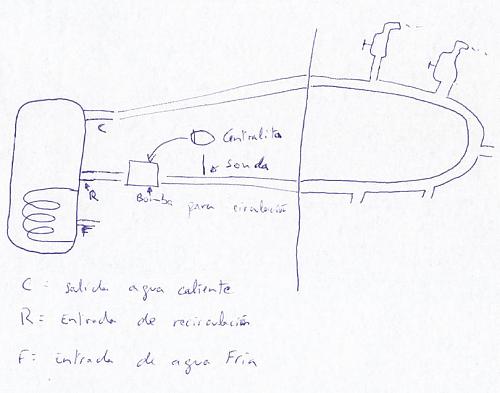 C
Centralita
sonda
R
Bomba para circulación
F
C = salida agua caliente
R = Entrada de recirculación
F = entrada de agua Fria